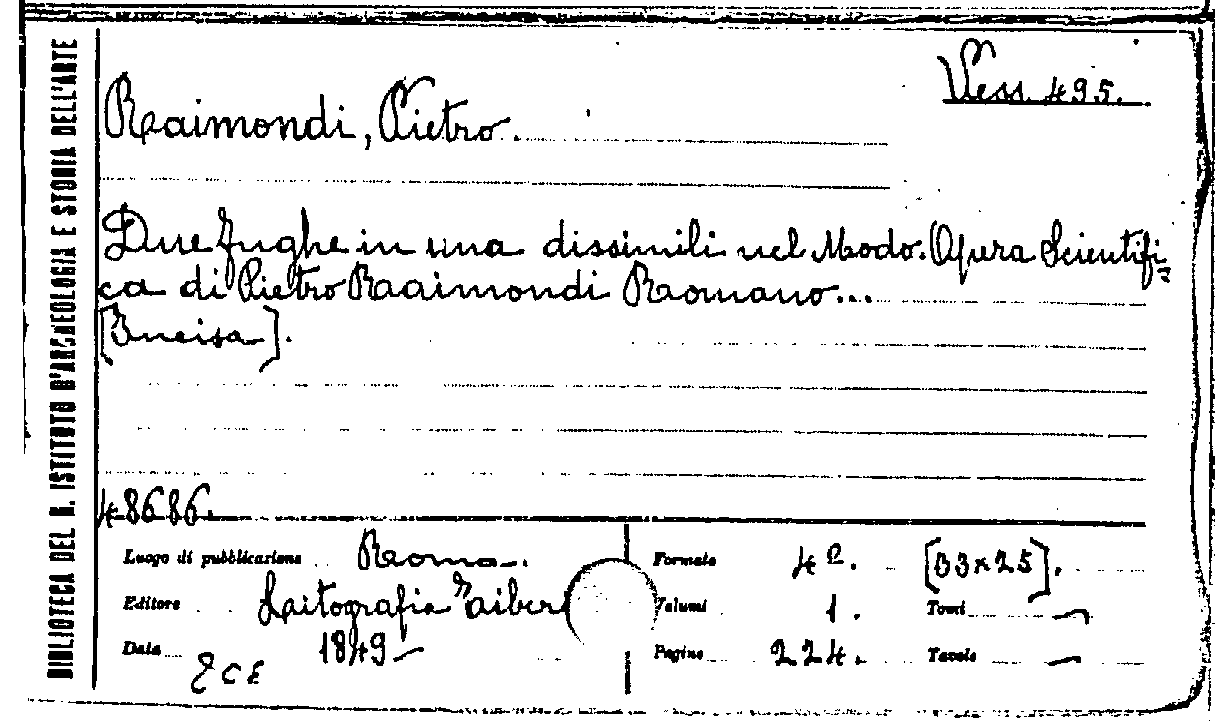 BIBLIOTECA DEL R. ISTITUTO D'ARCHEOLOGIA E STORIA DELL'ARTE
Vess. 495.
Raimondi, Pietro.
Due fughe in una dissimili nel Modo. Opera Scientifi=
ca di Pietro Raaimondi Romano...
[Incisa].
48686.
Luogo di pubblicazione Roma.
Formato 4º. [33x25].
Editore Laitografia
Volumi 1. Tomi —
Data 1849 —
Pagine 224. Tavole —